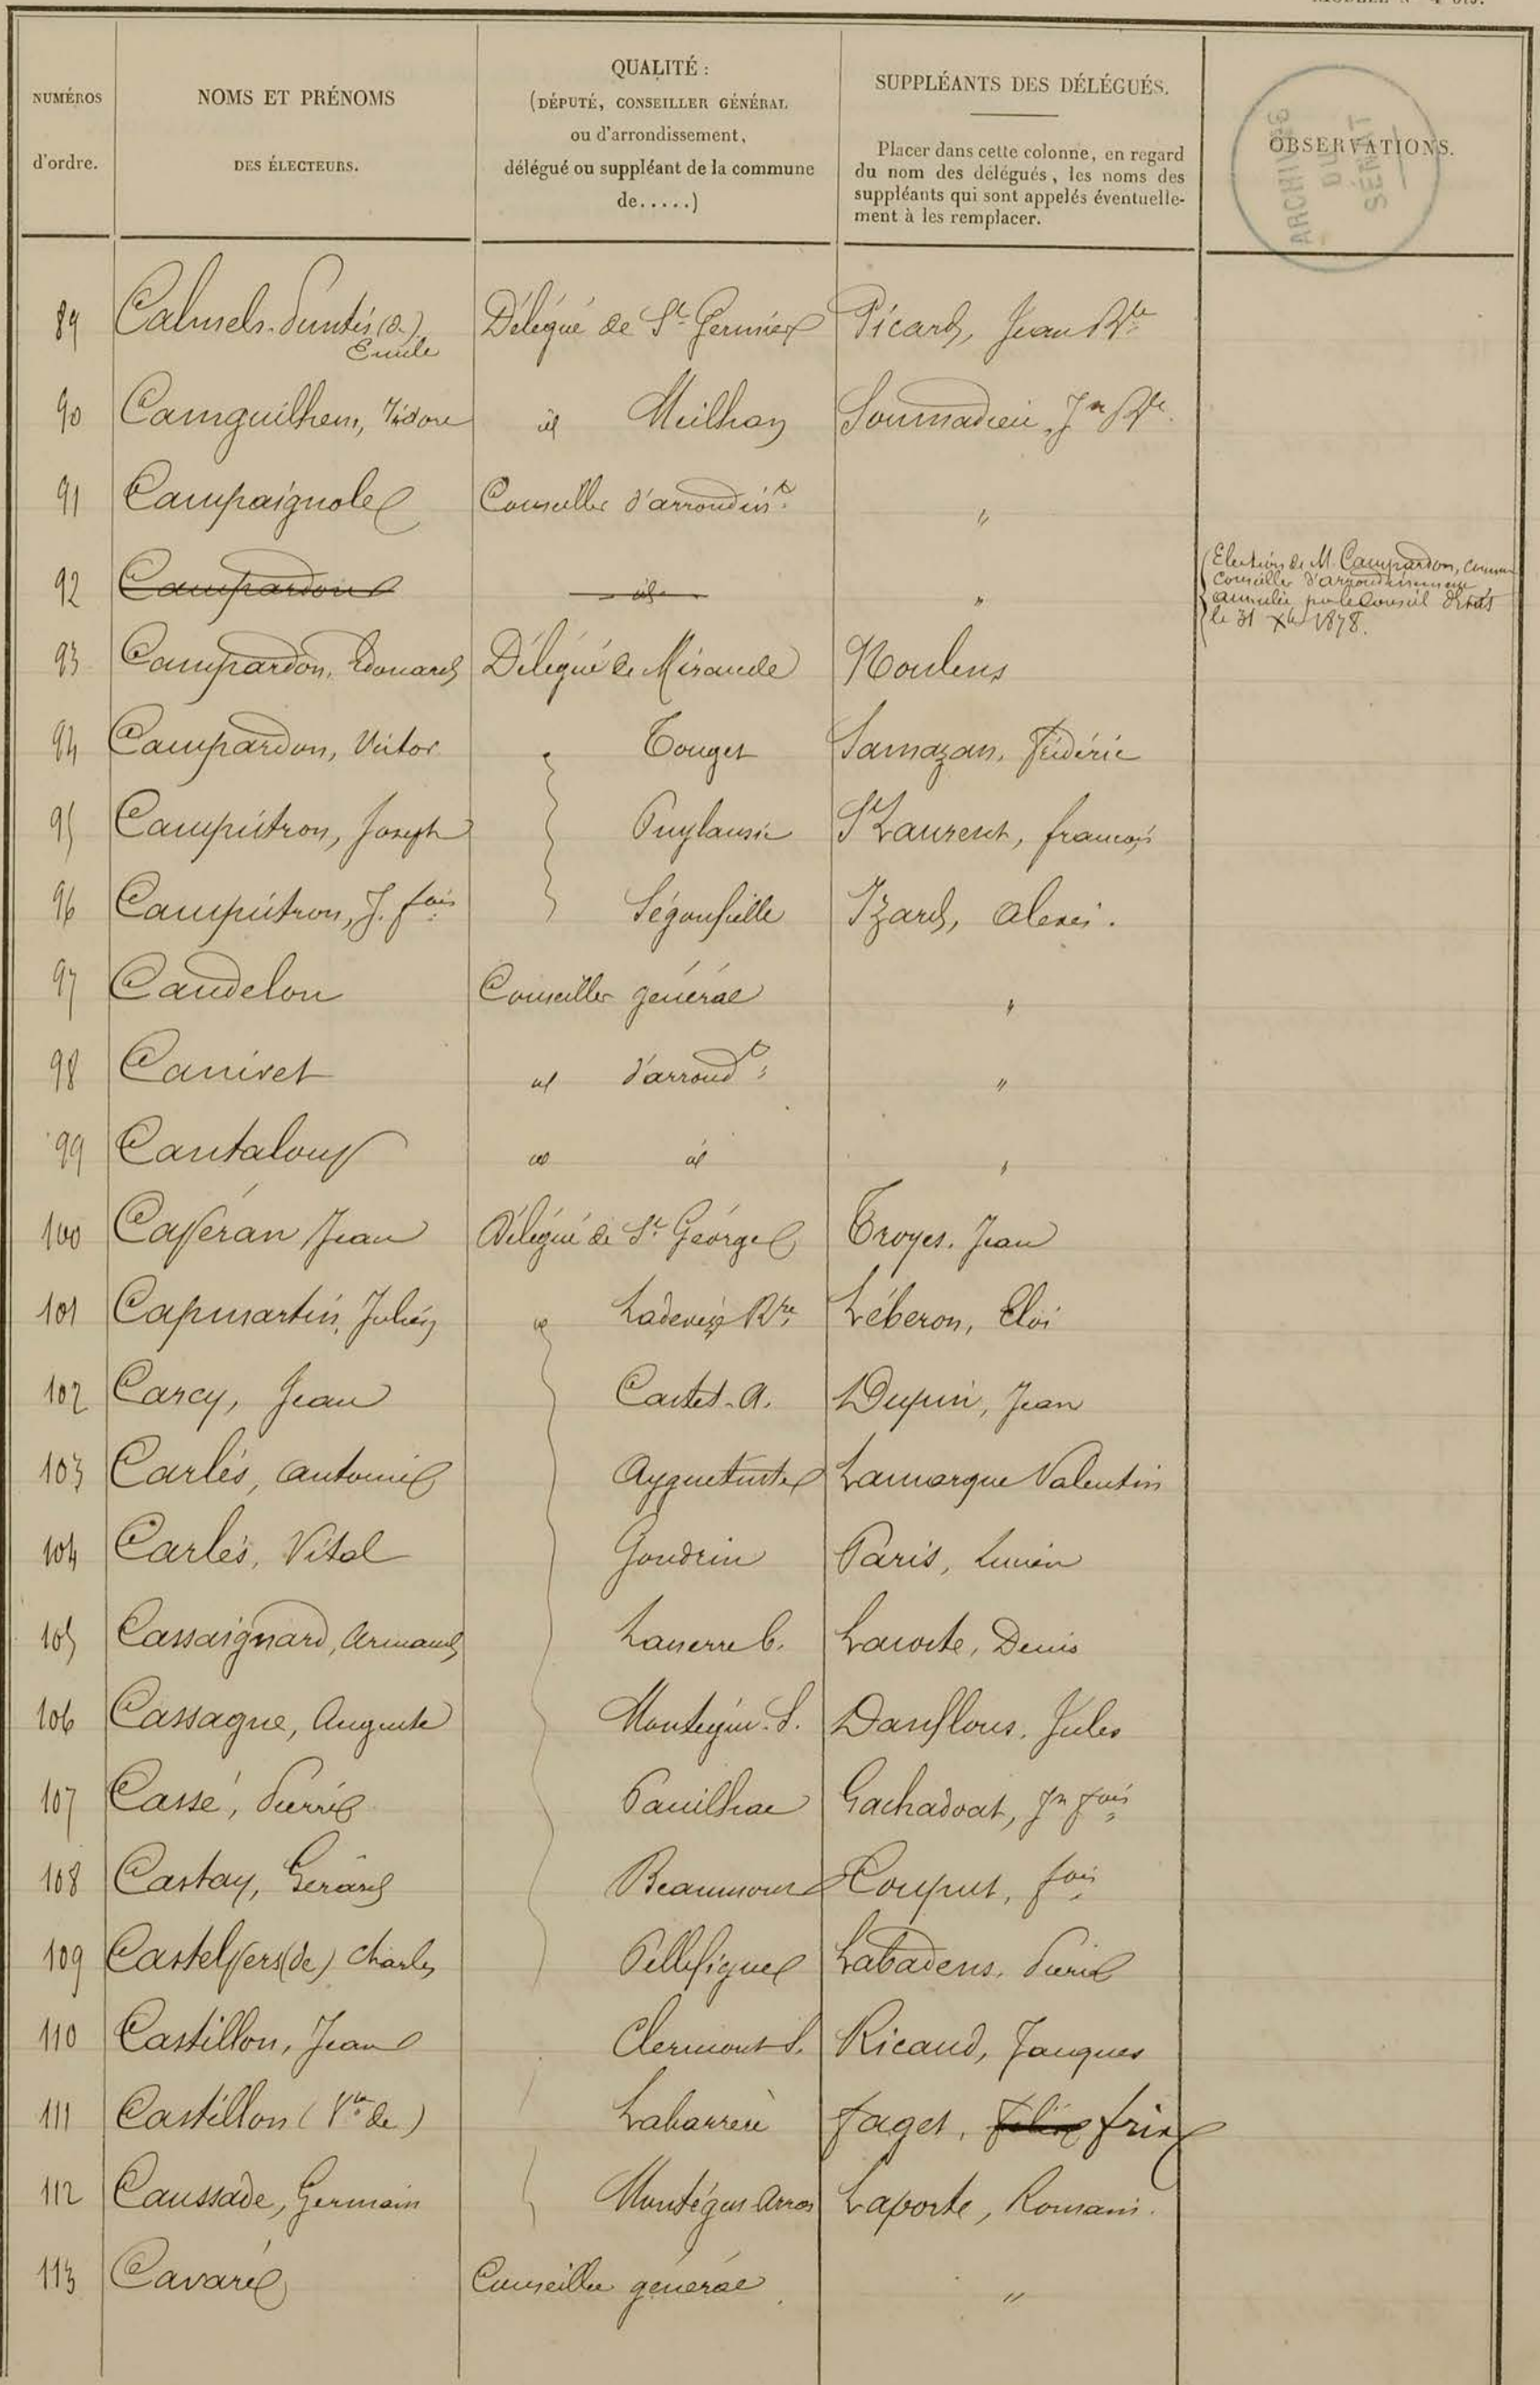 NUMÉROS
d'ordre.
NOMS ET PRÉNOMS
DES ÉLECTEURS.
QUALITÉ :
(DÉPUTÉ, CONSEILLER GÉNÉRAL
ou d'arrondissement,
délégué ou suppléant de la commune
de.....)
SUPPLÉANTS DES DÉLÉGUÉS.
Placer dans cette colonne, en regard
du nom des délégués, les noms des
suppléants qui sont appelés éventuelle-
ment à les remplacer.
OBSERVATIONS.
ARCHIVES
DU
SÉNAT
89 Calmels- (D.) Délégué de St Germier Picard, Jean Bte
Emile
90 Camguilhem, Isidore id Meilhan Soumadieu, Jn Bte
91 Campaignole Conseiller d'arrondist "
92 Campardon id "
Election de M. Campardon, comme
conseiller d'arrondissement,
annulée par le Conseil d'Etat
le 31 Xbre 1878.
93 Campardon, Edouard Délégué de Mirande Noulens
94 Campardon, Victor " Touget Samazan, Frédéric
95 Campistron, Joseph Puylausic St Laurent, françois
96 Campistron, J. fois Ségoufielle Izard, Alexis.
97 Candelon Conseiller général "
98 Canivet id d'arrondt "
99 Cantaloup id id "
100 Capéran Jean Délégué de St George Troyes, Jean
101 Capmartin, Julien id Ladevèze Rre Léberon, Eloi
102 Carcy, Jean Castet-A. Dupin, Jean
103 Carlès, Antoine Ayguetinte Lamarque Valentin
104 Carlès, Vital Gondrin Paris, Lucien
105 Cassaignard, Armand Lanerre b. Lacoste, Denis
106 Cassagne, Auguste Montégut. S. Danflous, Jules
107 Cassé, Pierre Pauilhac Gachadoat, Jn fois
108 Castay, Gérard Beaumont Couput, fois
109 Castelpers (de) Charles Pellefigue Labadens, Pierre
110 Castillon, Jean Clermont S. Ricaud, Jacques
111 Castillon (Vte de) Labarrère Faget, Félix frix
112 Caussade, Germain Montégut-Arros Laporte, Romain.
113 Cavaré Conseiller général "